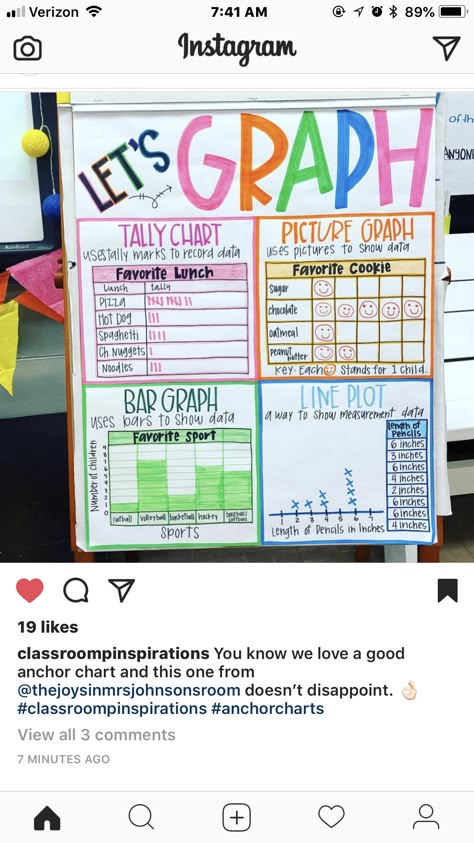 Verizon 7:41 AM 89%
Instagram
of th
ANYONE
LET'S GRAPH
TALLY CHART
uses tally marks to record data
Favorite Lunch
Lunch tally
Pizza
Hot Dog
Spaghetti
Ch. Nuggets
Noodles
PICTURE GRAPH
uses pictures to show data
Favorite Cookie
Sugar
chocolate
oatmeal
peanut butter
Key: Each Stands for 1 Child.
BAR GRAPH
uses bars to show data
Favorite Sport
Number of Children
9
8
7
6
5
4
3
2
1
0
Football Volleyball Basketball Hockey
Sports
LINE PLOT
a way to show measurement data
Length of Pencils
6 inches
3 inches
6 inches
4 inches
2 inches
6 inches
6 inches
4 inches
1 2 3 4 5 6 7
Length of Pencils in Inches
19 likes
classroompinspirations You know we love a good
anchor chart and this one from
@thejoysinmrsjohnsonsroom doesn't disappoint. 👌🏻
#classroompinspirations #anchorcharts
View all 3 comments
7 MINUTES AGO